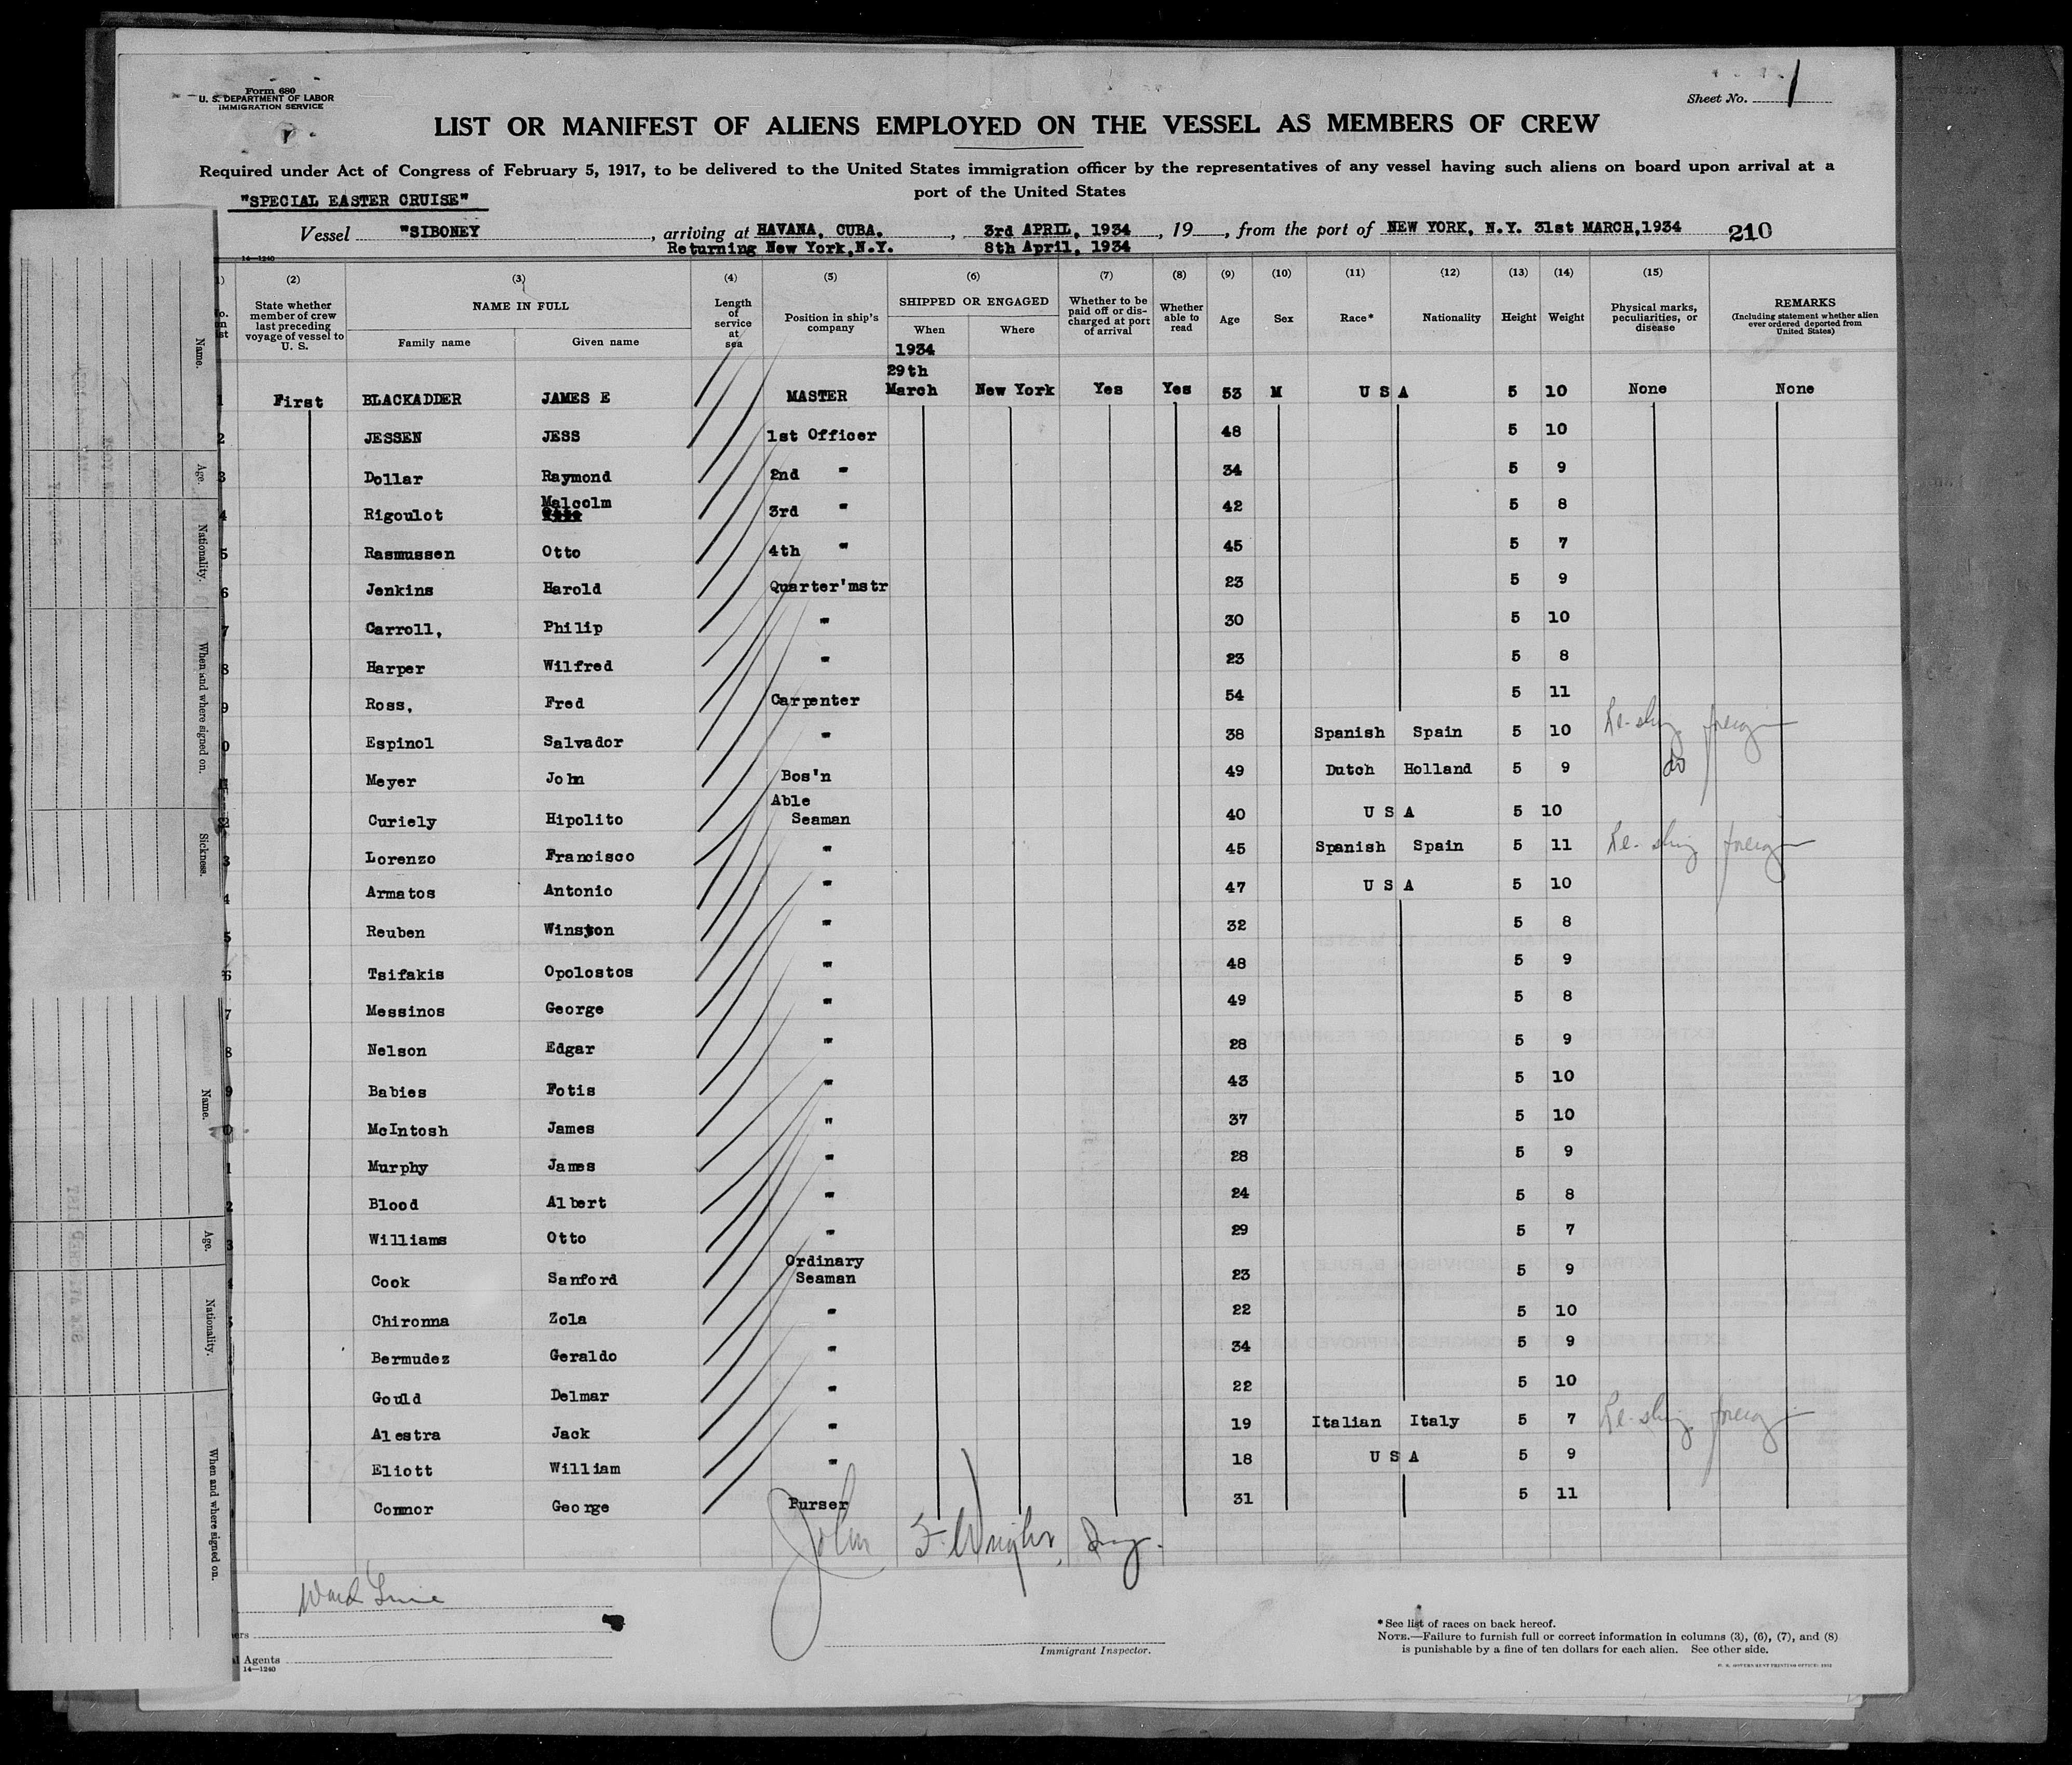 Form 680
U. S. DEPARTMENT OF LABOR
IMMIGRATION SERVICE
Sheet No. 1
LIST OR MANIFEST OF ALIENS EMPLOYED ON THE VESSEL AS MEMBERS OF CREW
Required under Act of Congress of February 5, 1917, to be delivered to the United States immigration officer by the representatives of any vessel having such aliens on board upon arrival at a
port of the United States
"SPECIAL EASTER CRUISE"
Vessel "SIBONEY , arriving at HAVANA, CUBA. , 3rd APRIL, 1934 , 19 , from the port of NEW YORK, N.Y. 31st MARCH,1934 210
Returning New York,N.Y. 8th April, 1934
14—1240
(2) (3) (4) (5) (6) (7) (8) (9) (10) (11) (12) (13) (14) (15)
State whether member of crew last preceding voyage of vessel to U. S.
NAME IN FULL
Family name Given name
Length of service at sea
Position in ship's company
SHIPPED OR ENGAGED
When Where
Whether to be paid off or discharged at port of arrival
Whether able to read
Age Sex Race* Nationality Height Weight
Physical marks, peculiarities, or disease
REMARKS
(Including statement whether alien ever ordered deported from United States)
1934
29th
1 First BLACKADDER JAMES E MASTER March New York Yes Yes 53 M U S A 5 10 None None
2 JESSEN JESS 1st Officer 48 5 10
3 Dollar Raymond 2nd " 34 5 9
4 Rigoulot Malcolm 3rd " 42 5 8
5 Rasmussen Otto 4th " 45 5 7
6 Jenkins Harold Quarter'mstr 23 5 9
7 Carroll, Philip " 30 5 10
8 Harper Wilfred " 23 5 8
9 Ross, Fred Carpenter 54 5 11
0 Espinol Salvador " 38 Spanish Spain 5 10 Re-shpg foreign
Meyer John Bos'n 49 Dutch Holland 5 9 do
Curiely Hipolito Able Seaman 40 U S A 5 10
3 Lorenzo Francisco " 45 Spanish Spain 5 11 Re-shpg foreign
4 Armatos Antonio " 47 U S A 5 10
5 Reuben Winston " 32 5 8
6 Tsifakis Opolostos " 48 5 9
7 Messinos George " 49 5 8
8 Nelson Edgar " 28 5 9
9 Babies Fotis " 43 5 10
0 McIntosh James " 37 5 10
1 Murphy James " 28 5 9
2 Blood Albert " 24 5 8
3 Williams Otto " 29 5 7
4 Cook Sanford Ordinary Seaman 23 5 9
Chironna Zola " 22 5 10
Bermudez Geraldo " 34 5 9
Gould Delmar " 22 5 10
Alestra Jack " 19 Italian Italy 5 7 Re-shpg foreign
Eliott William " 18 U S A 5 9
Connor George Purser 31 5 11
John F. Wright, Insp.
Ward Line
Agents
14—1240
Immigrant Inspector.
* See list of races on back hereof.
NOTE.—Failure to furnish full or correct information in columns (3), (6), (7), and (8)
is punishable by a fine of ten dollars for each alien. See other side.
U. S. GOVERNMENT PRINTING OFFICE: 1932
Name.
Age.
Nationality.
When and where signed on.
Sickness.
Name.
Age.
Nationality.
When and where signed on.